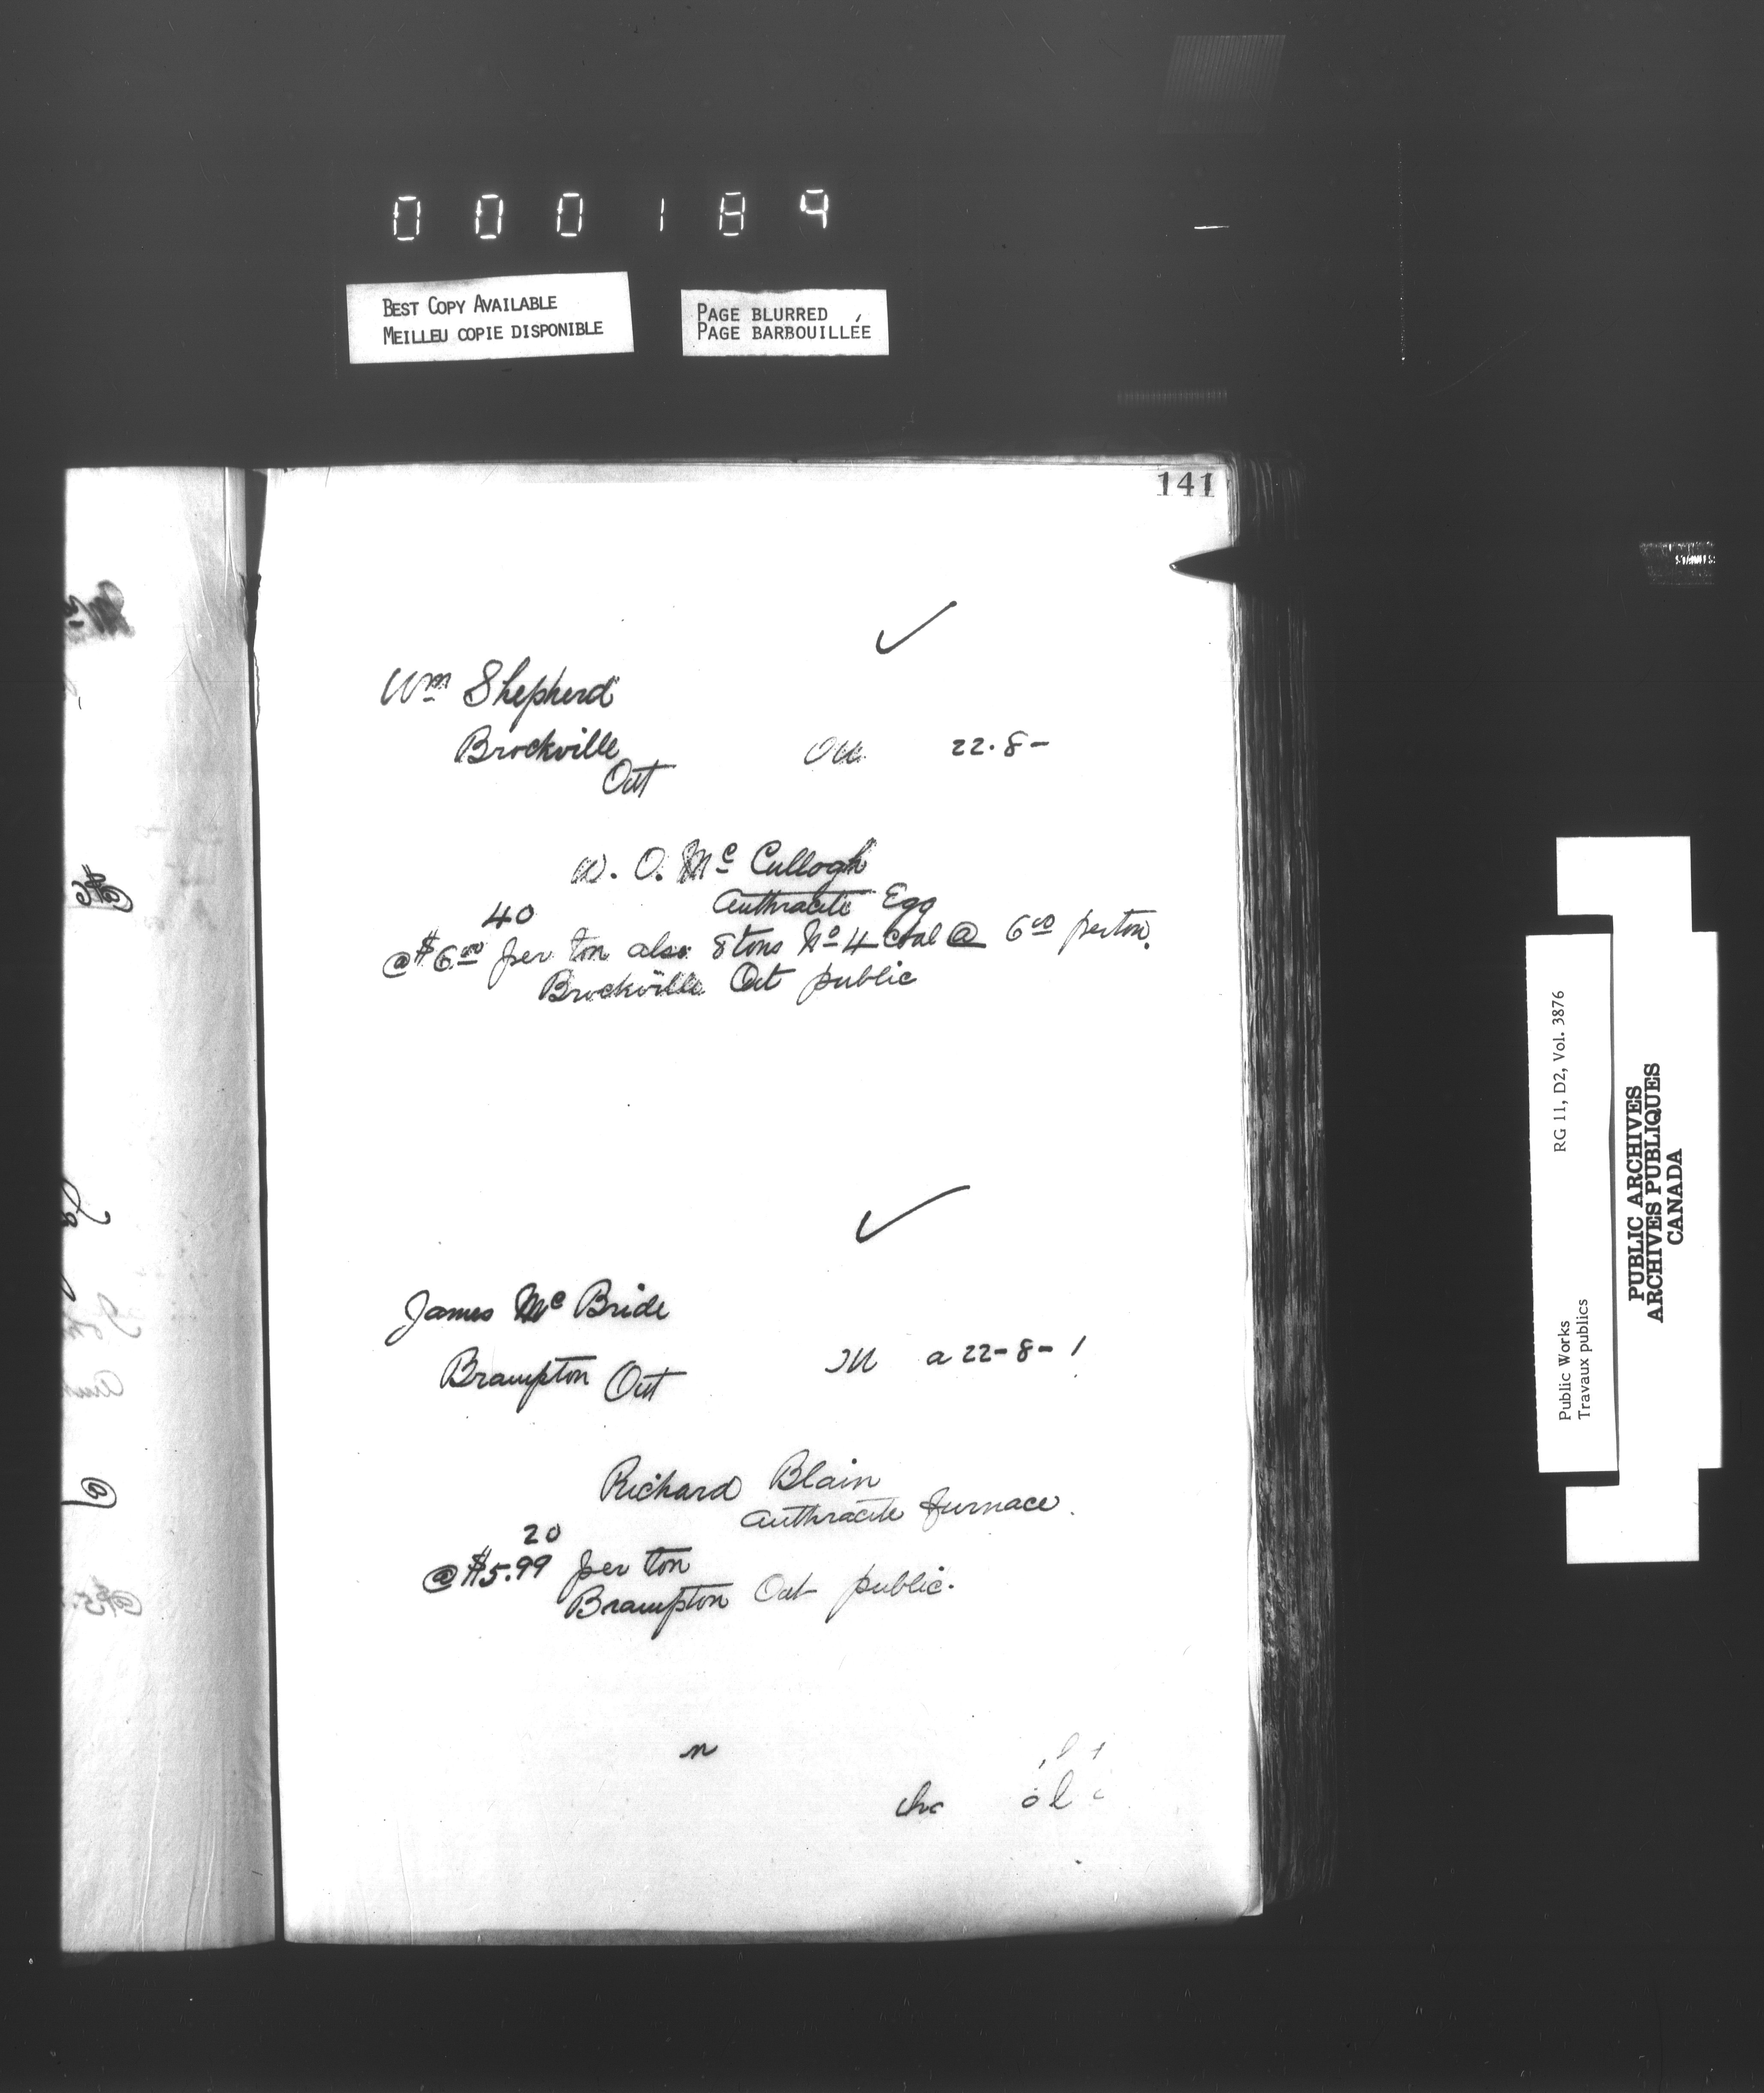 000189
BEST COPY AVAILABLE
MEILLEU COPIE DISPONIBLE
PAGE BLURRED
PAGE BARBOUILLÉE
141
Wm Shepherd
Brockville
Ont
22.8-
W. O. Mc Cullogh
Anthracite Egg
40
@ $6.00 per ton also 8 tons No 4 Coal @ 6.00 per ton.
Brockville Ont public
James Mc Bride
Brampton Ont
a 22-8-1
Richard Blain
Anthracite furnace.
20
@ $5.99 per ton
Brampton Ont public.
Public Works
Travaux publics
RG 11, D2, Vol. 3876
PUBLIC ARCHIVES
ARCHIVES PUBLIQUES
CANADA